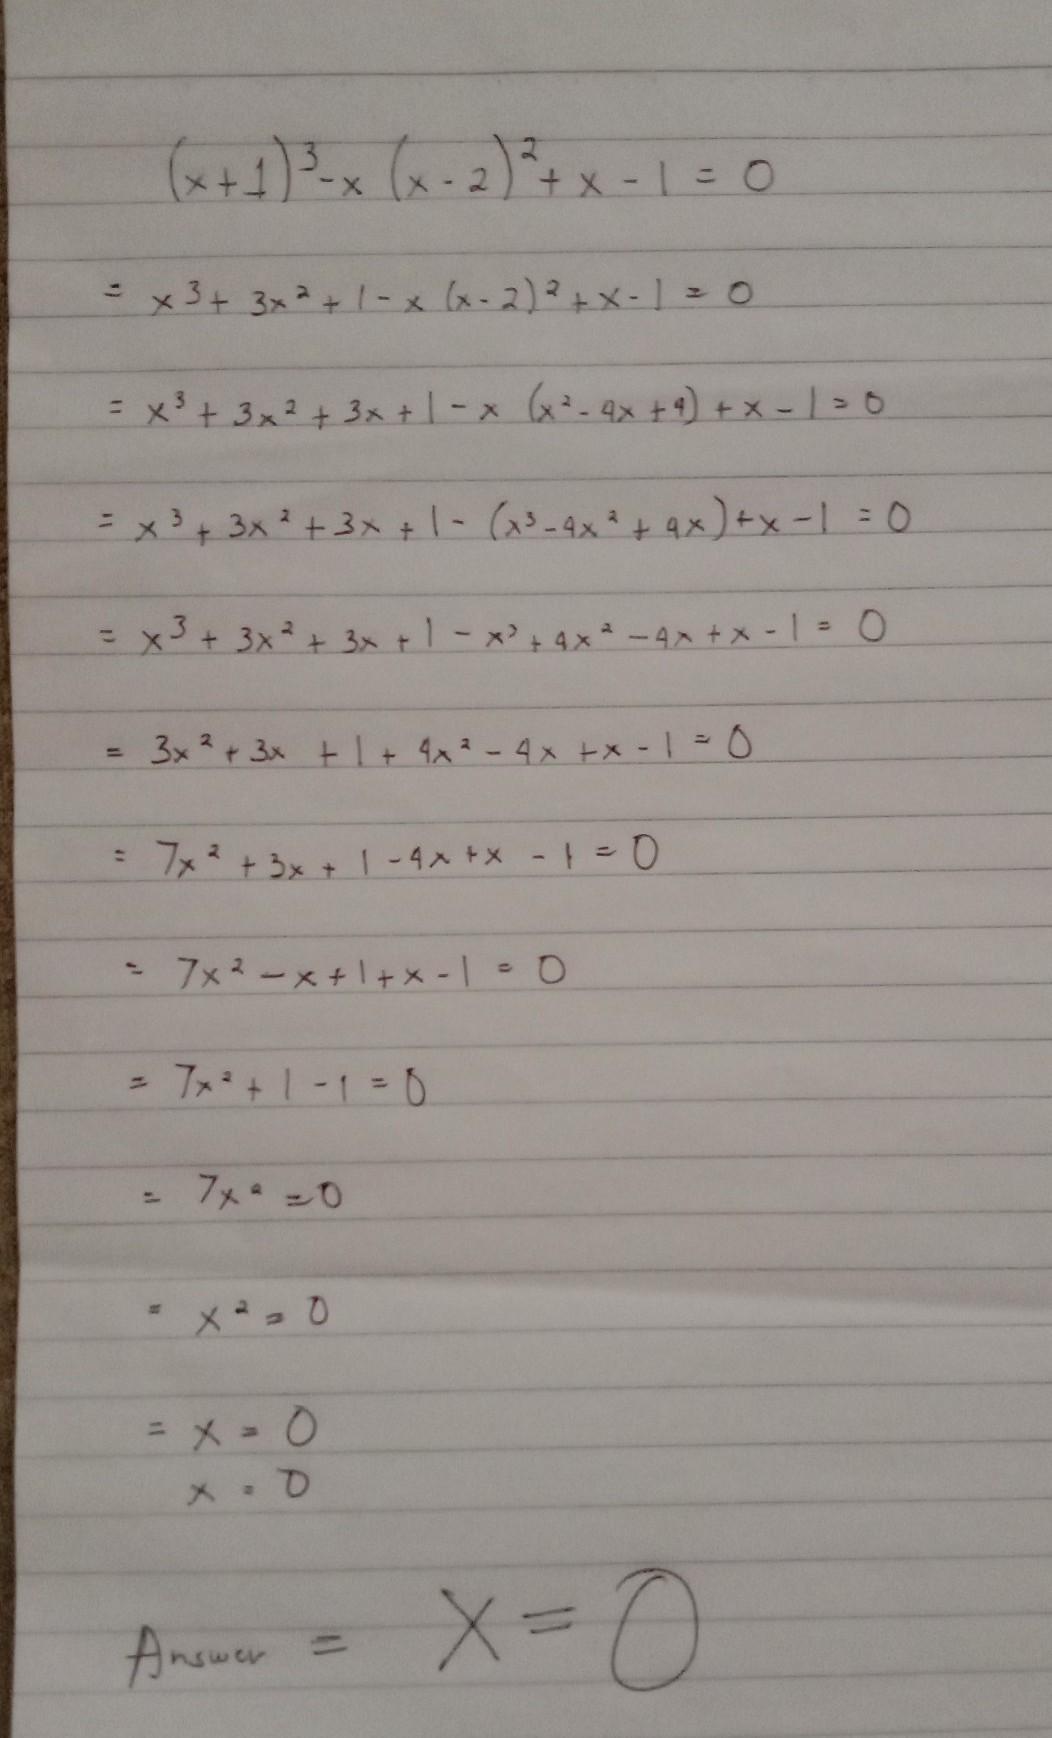 (x+1)³-x (x-2)²+x-1=0
= x³+3x²+1-x (x-2)²+x-1=0
= x³+3x²+3x+1-x (x²-4x+4)+x-1=0
= x³+3x²+3x+1-(x³-4x²+4x)+x-1=0
= x³+3x²+3x+1-x³+4x²-4x+x-1=0
= 3x²+3x+1+4x²-4x+x-1=0
= 7x²+3x+1-4x+x-1=0
= 7x²-x+1+x-1=0
= 7x²+1-1=0
= 7x²=0
= x²=0
= x=0
x=0
Answer = x=0